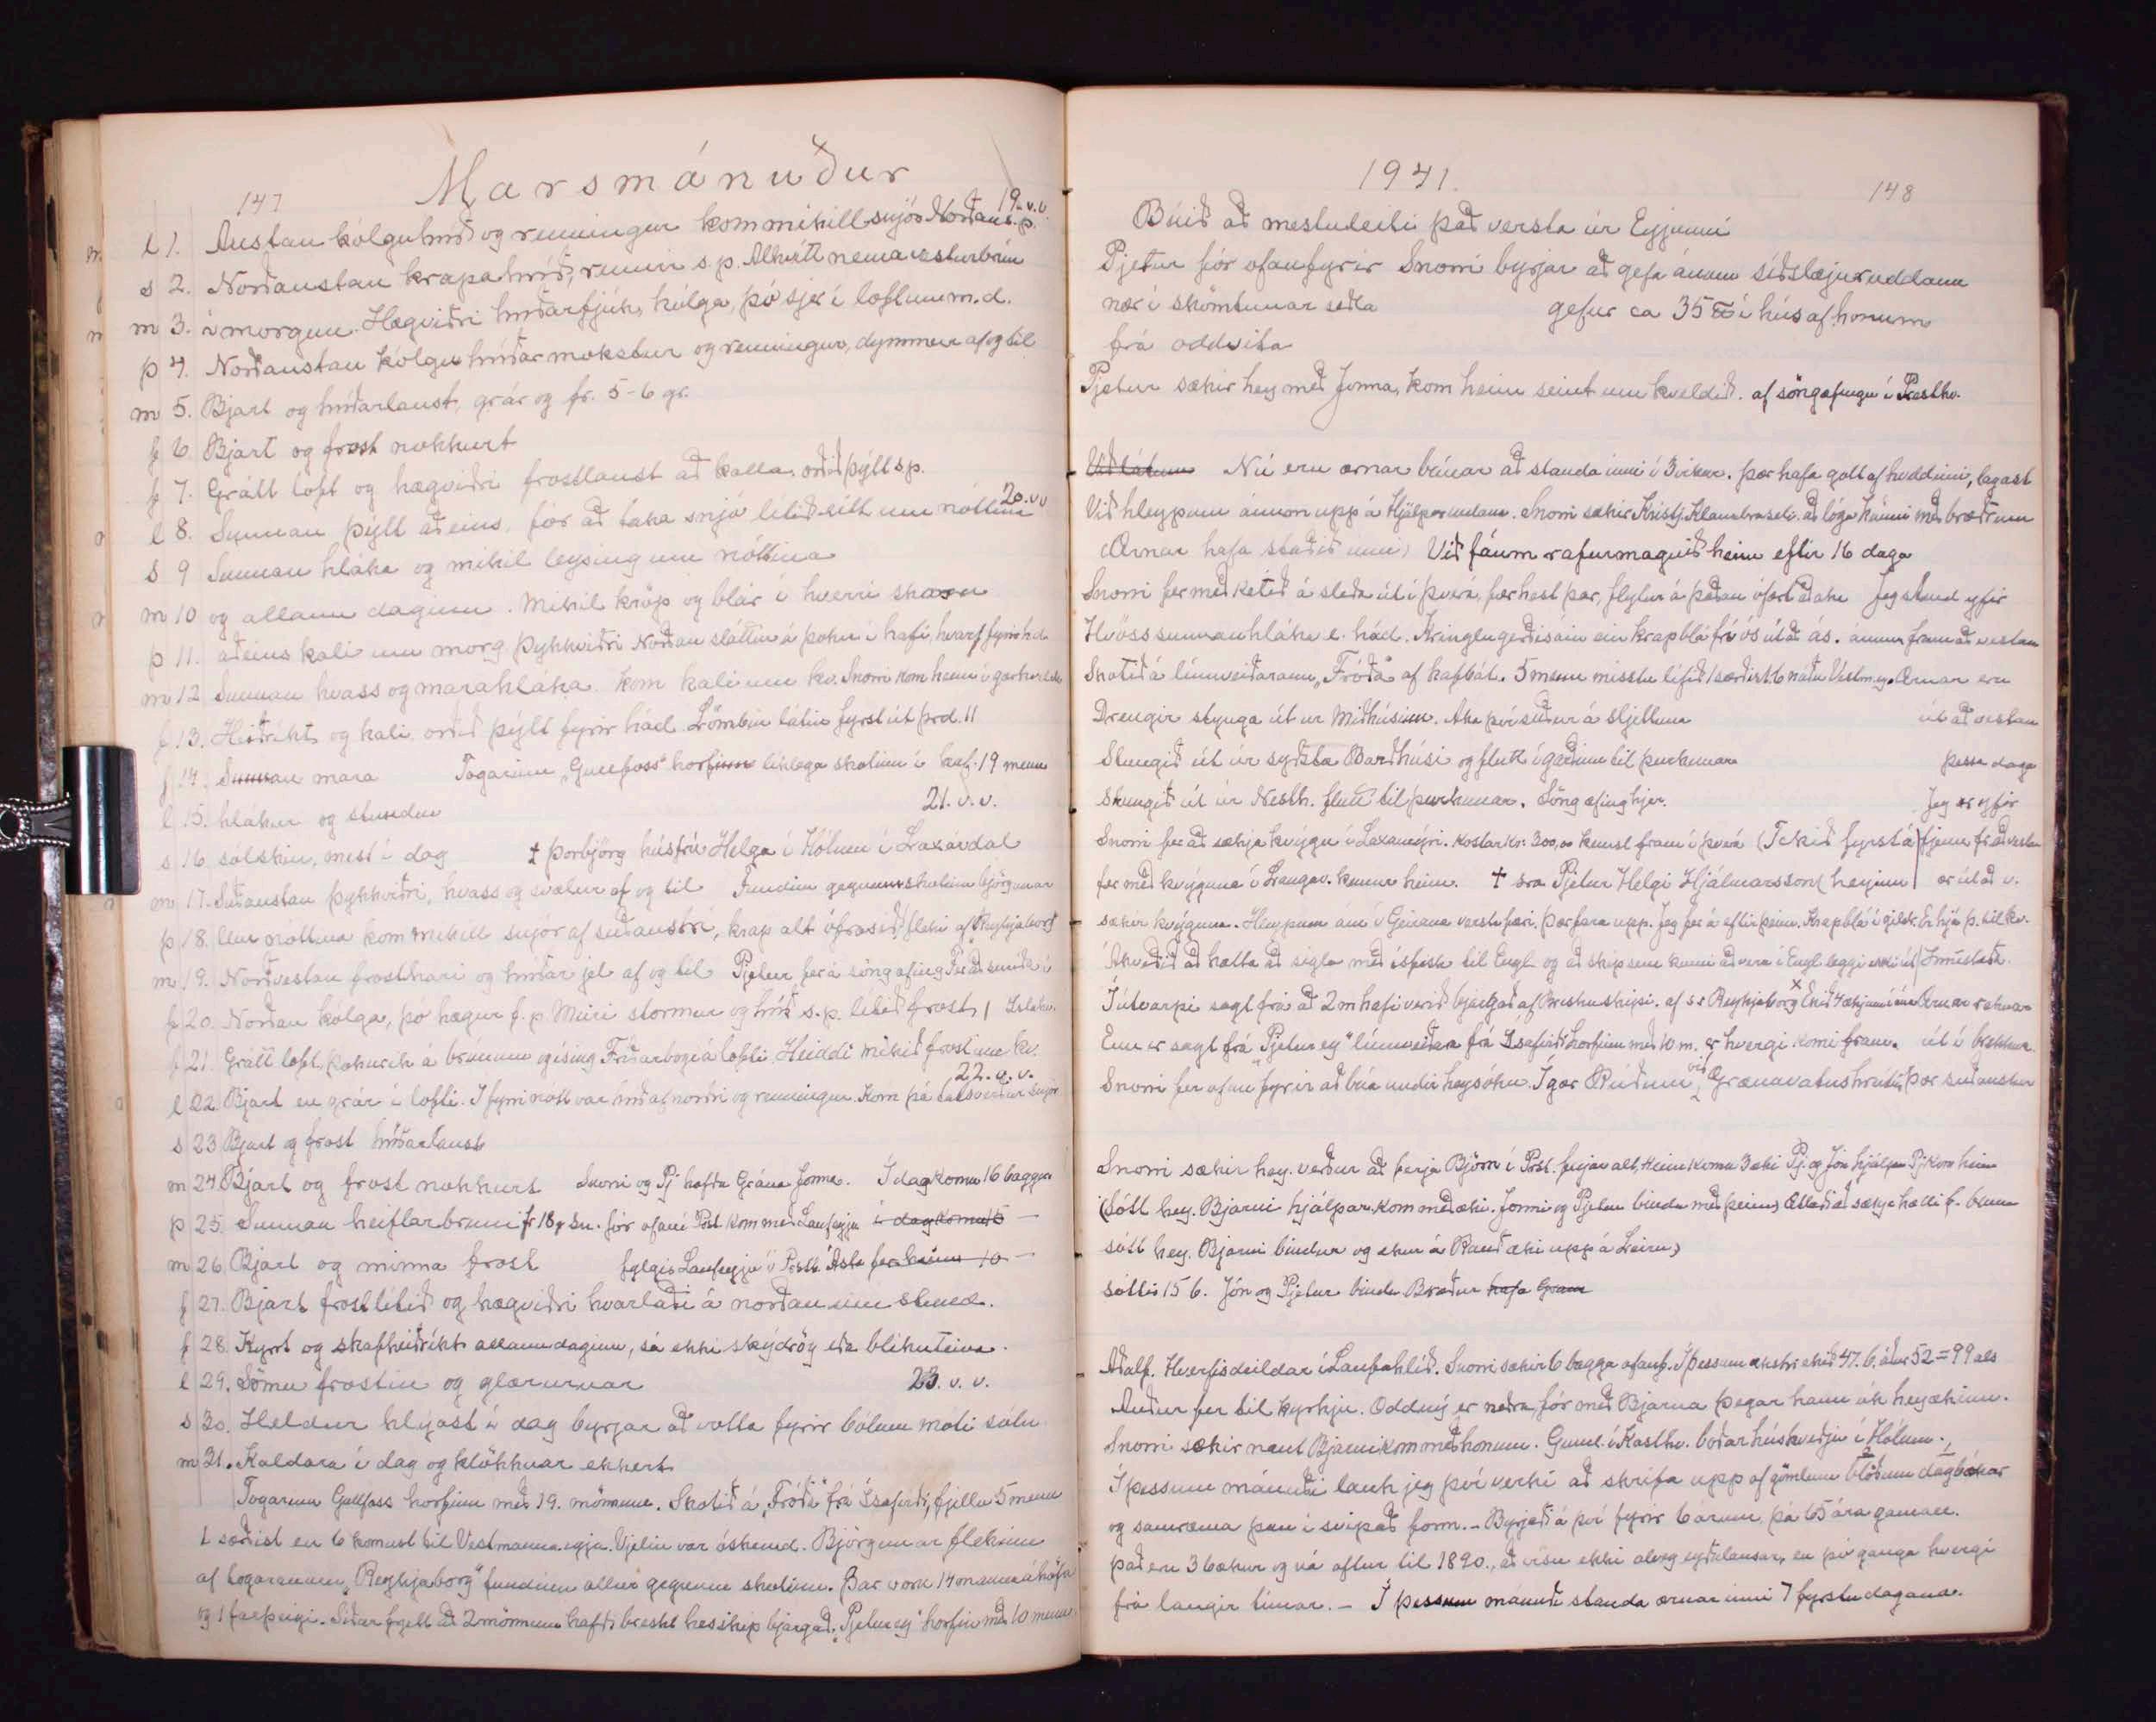 147
Marsmánuður
19. v.v.
l 1. Austan kólguhríð og renningur kom mikill snjór Norðaus. p.
s 2. Norðaustan krapahríð, rennir s.p. Alhvítt nema vesturbrún
m 3. á morgun. Hægviðri hríðarfjúk, kólga, þó sjer í loftum m.d.
þ 4. Norðaustan kólgu hríðar mokstur og renningur, dymmur af og til
m 5. Bjart og hríðarlaust, grár og fr. 5-6 gr.
f 6 Bjart og frost nokkurt
f 7. Grátt loft og hægviðri frostlaust að kalla. orðið þýtt s.p.
20. v.v
l 8. Sunnan þýtt aðeins, fór að taka snjó lítið eitt um nóttina
s 9 Sunnan hláka og mikil leysing um nóttina
m 10 og allann daginn. Mikil kröp og blár í hverri
þ 11. aðeins kali um morg. Þykkviðri Norðan sláttur á þoku í hafi, hvarf fyrir h.d.
m 12 Sunnan hvass og marahláka. Kom kali um kv. Snorri kom heim í gærkveldi
f 13. Heiðríkt og kali orðið þýtt fyrir hád. Lömbin látin fyrst út þrd. 11
f 14. Sunnan mara Togarinn „Gullfoss" horfinn líklega skotinn í kaf. 19 menn
21. v.v.
l 15. hlákur og stundum
s 16 sólskin, mest í dag ‡ Þorbjörg húsfrú Helga í Hólum í Laxárdal
m 17. Suðaustan þykkviðri, hvass og svalur af og til Fundinn gegnumskotinn björgunar
þ 18. Um nóttina kom mikill snjór af suðaustri, krap alt ófrosið fleki af Reykjaborg
m 19. Norðvestan frosthari og hríðar jel af og til Pjetur fer á söngæfing
f 20. Norðan kólga, þó hægur f.p. Meiri stormur og hríð s.p. lítið frost
f 21. Grátt loft, þokureik á brúnum og ísing Friðarbogi á lofti. Heiddi mikið frost um kv.
22. v.v.
l 22. Bjart en grár í lofti. Í fyrri nótt var hríð af norðri og renningur. Kom þá talsverður snjór
s 23 Bjart og frost hríðarlaust
m 24 Bjart og frost nokkurt Snorri og Pj. hafða Grána Jonna. Í dag komu 16 baggar
þ 25 Sunnan heiftarbruni fr 18 gr Sn. fór ofaní Póst kom með Laufeyju í dag komu 15 —
m 26 Bjart og minna frost fylgir Laufeyju í Presth. Ásta fer heim 10 —
f 27. Bjart frostlítið og hægviðri hvarlaði á norðan um stund.
f 28. Kyrrt og skafheiðríkt allann daginn, sá ekki skýdrög eða blikuteina.
l 29. Sömu frostin og glærurnar 23. v.v.
s 30. Heldur hlýast í dag byrjar að votta fyrir bólum móti sólu.
m 31. Kaldara í dag og klökknar ekkert
Togarinn Gullfoss horfinn með 19. mönnum. Skotið á „Fróða" frá Ísafirði, fjellu 5 menn
1 særðist en 6 komust til Vestmannaeyja. Vjelin var óskemd. Björgunar flekinn
af togaranum „Reykjaborg" fundinn allur gegnum skotinn. Þar voru 14 manna áhöfn
og 1 farþegi. Síðar frjett að 2 mönnum hafði breskt herskip bjargað. „Pjetursey" horfin með 10 menn

1941.
148
Búið að mestu leiti það versta úr Eyjunni
Pjetur fór ofanfyrir Snorri byrjar að gefa ánum síðslæjuruddann
nær í skömtunar seðla gefur ca 35 ℔ í hús af honum
frá oddvita
Pjetur sækir hey með Jonna, kom heim seint um kveldið. af söngæfingu í Presthv.
Við látum Nú eru ærnar búnar að standa inni í 3 vikur. Þær hafa gott af hvíldinni, lagast
Við hleypum ánnum upp á Hjálparundann. Snorri sækir Kristj. Klambraseli. að lóga kúnni með bræðrum
(Ærnar hafa staðið inni) Við fáum rafurmagnið heim eftir 16 daga
Snorri fer með ketið á sleða út í Þverá, fær hest þar, flytur á þaðan ófært að aka Jeg stend yfir
Hvöss sunnanhláka e. hád. Kringlugerðisáin ein krapblá frá ós útað ás. ánum fram að vestan
Skotið á línuveiðarann „Fróða" af kafbát. 5 menn misstu lífið 1 særðist. 6 náðu Vestm.ey. Ærnar eru
Drengir stynga út úr Miðhúsinu. Aka því suður á sljettuna út að vestan
Stungið út úr syðsta Barðhúsi og flutt í garðinn til þurkunar þessa daga
Stungið út úr Nesth. flutt til þurkunar. Söngæfing hjer. Jeg er yfir
Snorri fer að sækja kvígu í Laxamýri. kostar kr. 300,00 kemst fram í Þverá (Tekið fyrst á fjenu fr. að vestan
fer með kvíguna í Langav. kemur heim. ‡ sra Pjetur Helgi Hjálmarsson heyinu er útað v.
sækir kvíguna. Hleypum ám í Geirana versta færi. Þær fara upp. Jeg fer á eftir þeim. Krapblá í gilsk. Er hjá þ. til kv.
Ákveðið að hætta að sigla með ísfisk til Engl. og að skip sem kunni að vera í Engl. leggi ekki út
Í útvarpi sagt frá að 2 m hafi verið bjargað af bresku skipi. af s.s Reykjaborg
Enn er sagt frá „Pjetursey" línuveiðara frá Ísafirði horfinn með 10 m. er hvergi komi fram. út í brekkur
Snorri fer ofan fyrir að búa undir heysókn. Í gær við Grænavatnshrúti, þar suðaustur
Snorri sækir hey. verður að ferja Björn í Póst. ferjar alt, Heim komu 3 æki Pj. og Jón hjálpa Pj kom heim
(Sótt hey. Bjarni hjálpar. kom með æki. Jonni og Pjetur binda með þeim)
sótt hey. Bjarni bindur og ekur á Rauð æki upp á Leiru)
sóttir 15 b. Jón og Pjetur binda Bræður hafa Gram
Aðalf. Hverfisdeildar í Laufahlíð. Snorri sækir 6 bagga ofanf. Í þessum akstri ekið 47. b, áður 52 = 99 als
Auður fer til kyrkju. Oddný er neðra, fór með Bjarna þegar hann ók heyækinu.
Snorri sækir naut Bjarni kom með honum. Guml. í Kasthv. boðar húskveðju í Hólum.
Í þessum mánuði lauk jeg því verki að skrifa upp af gömlum blöðum dagbókar
og samræma þær í svipað form. - Byrjaði á því fyrir 6 árum, þá 65 ára gamall.
Það eru 3 bækur og ná aftur til 1890., að vísu ekki alveg eyðulausar, en þó ganga hvergi
frá langir tímar. - Í þessum mánuði standa ærnar inni 7 fyrstu dagana.